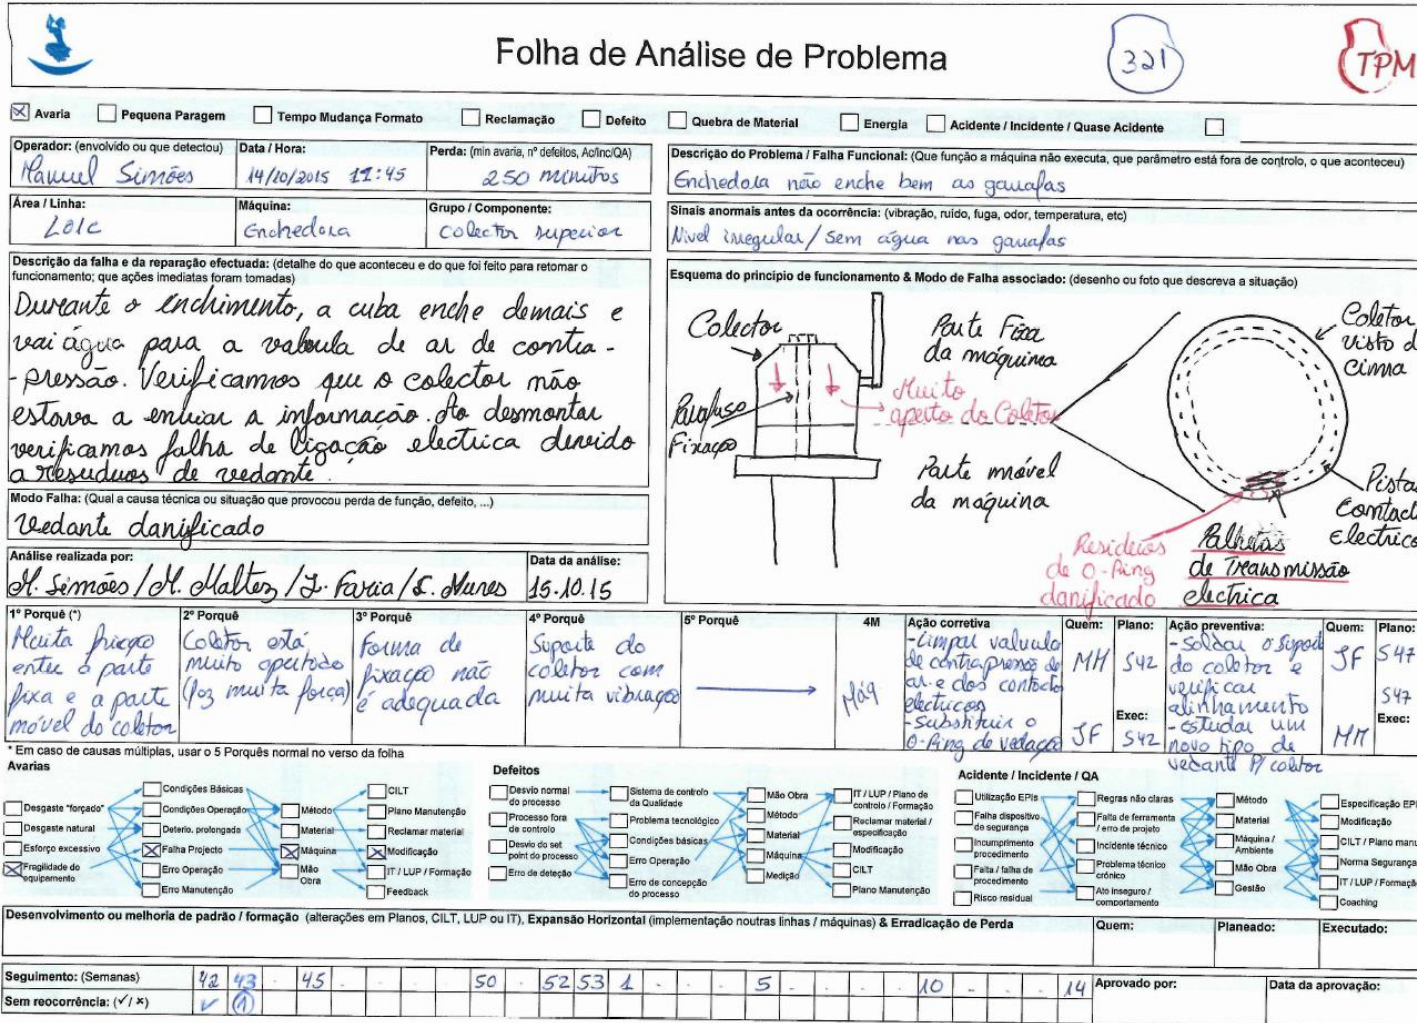 Folha de Análise de Problema
321
TPM
Avaria
Pequena Paragem
Tempo Mudança Formato
Reclamação
Defeito
Quebra de Material
Energia
Acidente / Incidente / Quase Acidente
Operador: (envolvido ou que detectou)
Manuel Simões
Data / Hora:
14/10/2015 11:45
Perda: (min avaria, nº defeitos, Ac/Inc/QA)
250 minutos
Área / Linha:
Máquina:
Enchedora
Grupo / Componente:
Colector superior
Descrição do Problema / Falha Funcional: (Que função a máquina não executa, que parâmetro está fora de controlo, o que aconteceu)
Enchedora não enche bem as garrafas
Sinais anormais antes da ocorrência: (vibração, ruído, fuga, odor, temperatura, etc)
Nivel irregular / Sem água nas garrafas
Descrição da falha e da reparação efectuada: (detalhe do que aconteceu e do que foi feito para retomar o
funcionamento; que ações imediatas foram tomadas)
Durante o enchimento, a cuba enche demais e
vai água para a valvula de ar de contra-
-pressão. Verificamos que o colector não
estava a enviar a informação. Ao desmontar
verificamos falha de ligação electrica devido
a residuos de vedante.
Modo Falha: (Qual a causa técnica ou situação que provocou perda de função, defeito, ...)
Vedante danificado
Análise realizada por:
M. Simões / M. Maltez / J. Faria / S. Nunes
Data da análise:
15.10.15
Esquema do principio de funcionamento & Modo de Falha associado: (desenho ou foto que descreva a situação)
Colector
Parafuso
Fixação
Parte Fixa
da máquina
Muito
aperto do Coletor
Parte móvel
da máquina
Coletor
visto d
cima
Pistas
Contacto
electrico
Residuos
de O-Ring
danificado
Palhetas
de Transmissão
electrica
1º Porquê (*)
Muita fricção
entre a parte
fixa e a parte
móvel do coletor
2º Porquê
Coletor está
muito apertado
(faz muita força)
3º Porquê
Forma de
fixação não
é adequada
4º Porquê
Suporte do
coletor com
muita vibração
5º Porquê
4M
Máq
Ação corretiva
-Limpar valvula
de contrapressão de
ar e dos contactos
electricos
-Substituir o
O-Ring de vedação
Quem:
MM
JF
Plano:
S42
Exec:
S42
Ação preventiva:
-Soldar o suporte
do coletor e
verificar
alinhamento
-estudar um
novo tipo de
vedante p/ coletor
Quem:
JF
MM
Plano:
S47
S47
Exec:
* Em caso de causas múltiplas, usar o 5 Porquês normal no verso da folha
Avarias
Desgaste "forçado"
Desgaste natural
Esforço excessivo
Fragilidade do
equipamento
Condições Básicas
Condições Operação
Deterio. prolongada
Falha Projecto
Erro Operação
Erro Manutenção
Método
Material
Máquina
Mão
Obra
CILT
Plano Manutenção
Reclamar material
Modificação
IT / LUP / Formação
Feedback
Defeitos
Desvio normal
do processo
Processo fora
de controlo
Desvio do set
point do processo
Erro de deteção
Sistema de controlo
da Qualidade
Problema tecnológico
Condições básicas
Erro Operação
Erro de concepção
do processo
Mão Obra
Método
Material
Máquina
Medição
IT / LUP / Plano de
controlo / Formação
Reclamar material /
especificação
Modificação
CILT
Plano Manutenção
Acidente / Incidente / QA
Utilização EPIs
Falha dispositivo
de segurança
Incumprimento
procedimento
Falta / falha de
procedimento
Risco residual
Regras não claras
Falta de ferramenta
/ erro de projeto
Incidente técnico
Problema técnico
crónico
Ato inseguro /
comportamento
Método
Material
Máquina /
Ambiente
Mão Obra
Gestão
Especificação EPI
Modificação
CILT / Plano manu
Norma Segurança
IT / LUP / Formação
Coaching
Desenvolvimento ou melhoria de padrão / formação (alterações em Planos, CILT, LUP ou IT), Expansão Horizontal (implementação noutras linhas / máquinas) & Erradicação de Perda
Quem:
Planeado:
Executado:
Seguimento: (Semanas)
42 43 . 45 . . . . 50 . 52 53 1 . . . 5 . . . . 10 . . . 14
Sem reocorrência: (✓/×)
✓ 1
Aprovado por:
Data da aprovação: